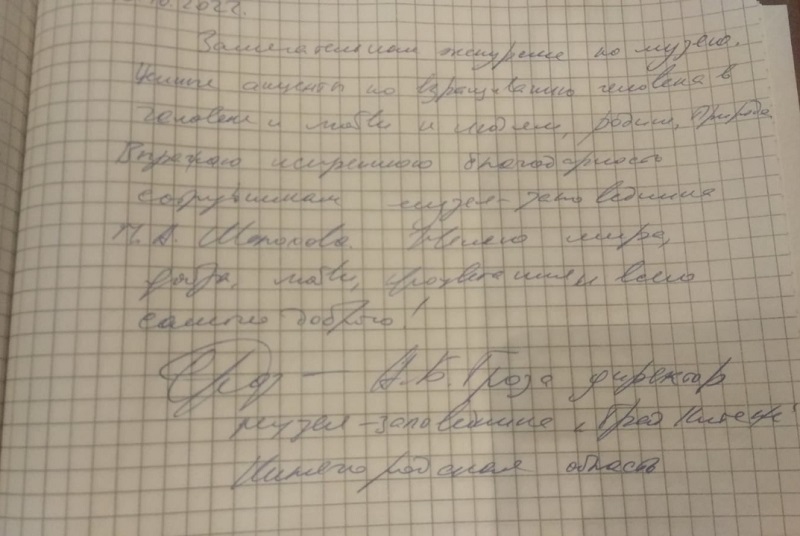 10.2022.
Замечательная экскурсия по музею.
Ценные акценты по взращиванию человека в
человеке и любви к людям, родине, природе
Выражаю искреннюю благодарность
сотрудникам музея-заповедника
М.А. Шолохова. Желаю мира,
добра, любви, процветания и всего
самого доброго!
А.Б. Гроза директор
музея-заповедника "Град Китеж"
Нижегородская область